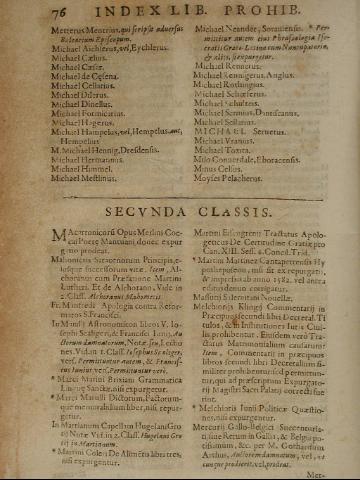 76 INDEX LIB. PROHIB.
Metterus Menorius, qui scripsit adversus
Episcopum.
Michael Aichlerus, vel, Eychlerus.
Michael Cælius.
Michael Cæsiæ.
Michael de Cesena.
Michael Cellarius.
Michael Dilerus.
Michael Dinellus.
Michael Formicarius.
Michael Hagerus.
Michael Hampelus, vel, Hempelus, aut,
Hempelius
M. Michael Hennig, Dresdensis.
Michael Hermannus.
Michael Himmel.
Michael Mestlinus.
Michael Neander, Soraviensis. * Per-
mittitur autem eius Phraseologia Iso-
cratis Græco-Latina cum
& aliis, si expurgetur.
Michael Rennerus.
Michael Rennigerus, Anglus.
Michael Rotlingius.
Michael Schæferus.
Michael Schulteis.
Michael Servius, Dunscanus.
Michael Stifanus.
MICHAEL Servetus.
Michael Vranius.
Michael Toxita.
Milo Conuerdale, Eboracensis.
Minus Celsus.
Moyses Pelacherus.
SECVNDA CLASSIS.
MAcutronicorum Opus Merlini Coc-
caii Poetæ Mantuani, donec expur-
getur prohibetur.
Mahometis Saracenorum Principis, e-
iusque successorum vitæ. Item, Al-
choranus cum Præfatione Martini
Lutheri. Et de Alchorano, Vide in
2. Class. Alchoranus Mahometis.
Apologia contra Refor-
mator. S. Francisci.
In Manilii Astronomicon libros V. Io-
sephi Scaligeri, & Francisci Iunii, Au-
ctorum damnatorum, Notæ, seu, Lectio-
nes. Vid. in 1. Class. Iosephus Scaliger,
vel, Permittuntur autem, & Francis-
cus Iunius, vel, Permittuntur verò.
* Marci Marini Brixiani Grammatica
Linguæ Sanctæ, nisi expurgetur.
* Marci Marulli Dictorum, Factorum-
que memorabilium liber, nisi repur-
getur.
In Martianum Capellam Hugelani Gro-
tii Notæ. Vid. in 2. Class. Hugelani Gro-
tii in Martianum.
* Martini Coleri De Alimentis libri tres,
nisi expurgentur.
Martini Eisengrenii Tractatus Apolo-
geticus De Certitudine Gratiæ pro
Can. XIII. Sess. 6. Concil. Trid.
* Martini Martinez Cantapetrensis Hy-
potyposeon, nisi sit ex repurgatis,
& impressis ab anno 1582. vel antea
eiusdem donec corrigatur.
Masutii Salernitani Novellæ.
Melchioris Klingij Commentarij in
Præcipuos secundi libri Decretal. Ti-
tulos, & in Institutiones Iuris Ciui-
lis prohibentur. Eiusdem verò Tra-
ctatus Matrimonialium causarum:
Item, Commentarij in præcipuos
libros secundi libri Decretalium si-
militer prohibentur, sed permittun-
tur, qui ad præscriptum Expurgato-
rij Magistri Sacri Palatij correcti fue-
rint.
* Melchioris Iunii Politicæ Quæstio-
nes, nisi expurgentur.
Mercurij Gallo-Belgici Succenturia-
ti, siue Rerum in Gallia, & Belgio po-
tissimum, &c. per M. Gothardum
Arthus, Auctorem damnatum, vel, à
cunque prodierit, vel, prodeat.
Mer-